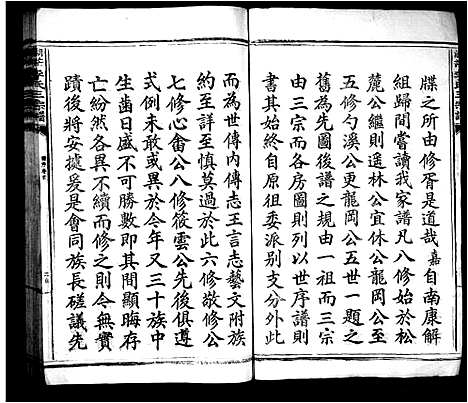 牒之所由修胥是道哉嘉自南康解
組歸閒嘗讀我家譜凡八修始於松
麓公繼則遥林公宜休公龍岡公至
五修勺溪公更龍岡公五世一題之
舊為先圖後譜之規以一祖而三宗
由三宗而各房圖則列以世序譜則
書其始終自原徂委派別支分
而為世傳内傳志王言志藝文附族
約至詳至慎莫過於此六修敬修公
七修心畬公八修筱雲公先後遵一
式例未敢或改於今年又三十族中
生齒日盛不可勝數即其間顯晦存
亡紛然不續而修之則令無實
蹟後將安據爰是會同族長磋議先